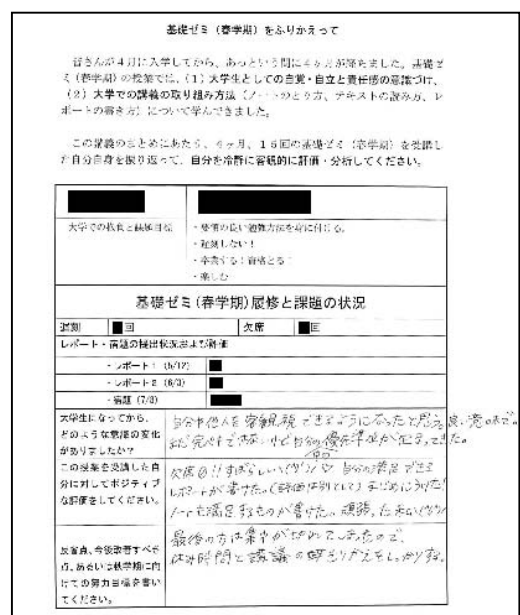 基礎ゼミ（春学期）をふりかえって
皆さんが４月に入学してから、あっという間に４ヶ月が経ちました。基礎ゼ
ミ（春学期）の授業では、（１）大学生としての自覚・自立と責任感の意識づけ、
（２）大学での講義の取り組み方法（ノートのとり方、テキストの読み方、レ
ポートの書き方）について学んできました。
この講義のまとめにあたり、４ヶ月、１５回の基礎ゼミ（春学期）を受講し
た自分自身を振り返って、自分を冷静に客観的に評価・分析してください。
大学での抱負と課題目標
・要領の良い勉強方法を身に付ける。
・遅刻しない！
・卒業する！資格とる！
・楽しむ
基礎ゼミ（春学期）履修と課題の状況
遅刻 回 欠席 回
レポート・宿題の提出状況および評価
・レポート１（5/12）
・レポート２（6/3）
・宿題（7/8）
大学生になってから、
どのような意識の変化
がありましたか？
自分や他人を客観視できるようになったと思う。良い意味で。
まだ完ペキではないけど自分の優先準位が
この授業を受講した自
分に対してポジティブ
な評価をしてください。
欠席0!!すばらしい 自分の満足できる
レポートが書けた。（評価は別として）まじめにうけた！
ノートも満足するものが書けた。頑張った
反省点、今後改善すべき
点、あるいは秋学期に向
けての努力目標を書い
てください。
最後の方は集中が切れてしまったので、
休み時間と講議の切りかえをしっかりする。